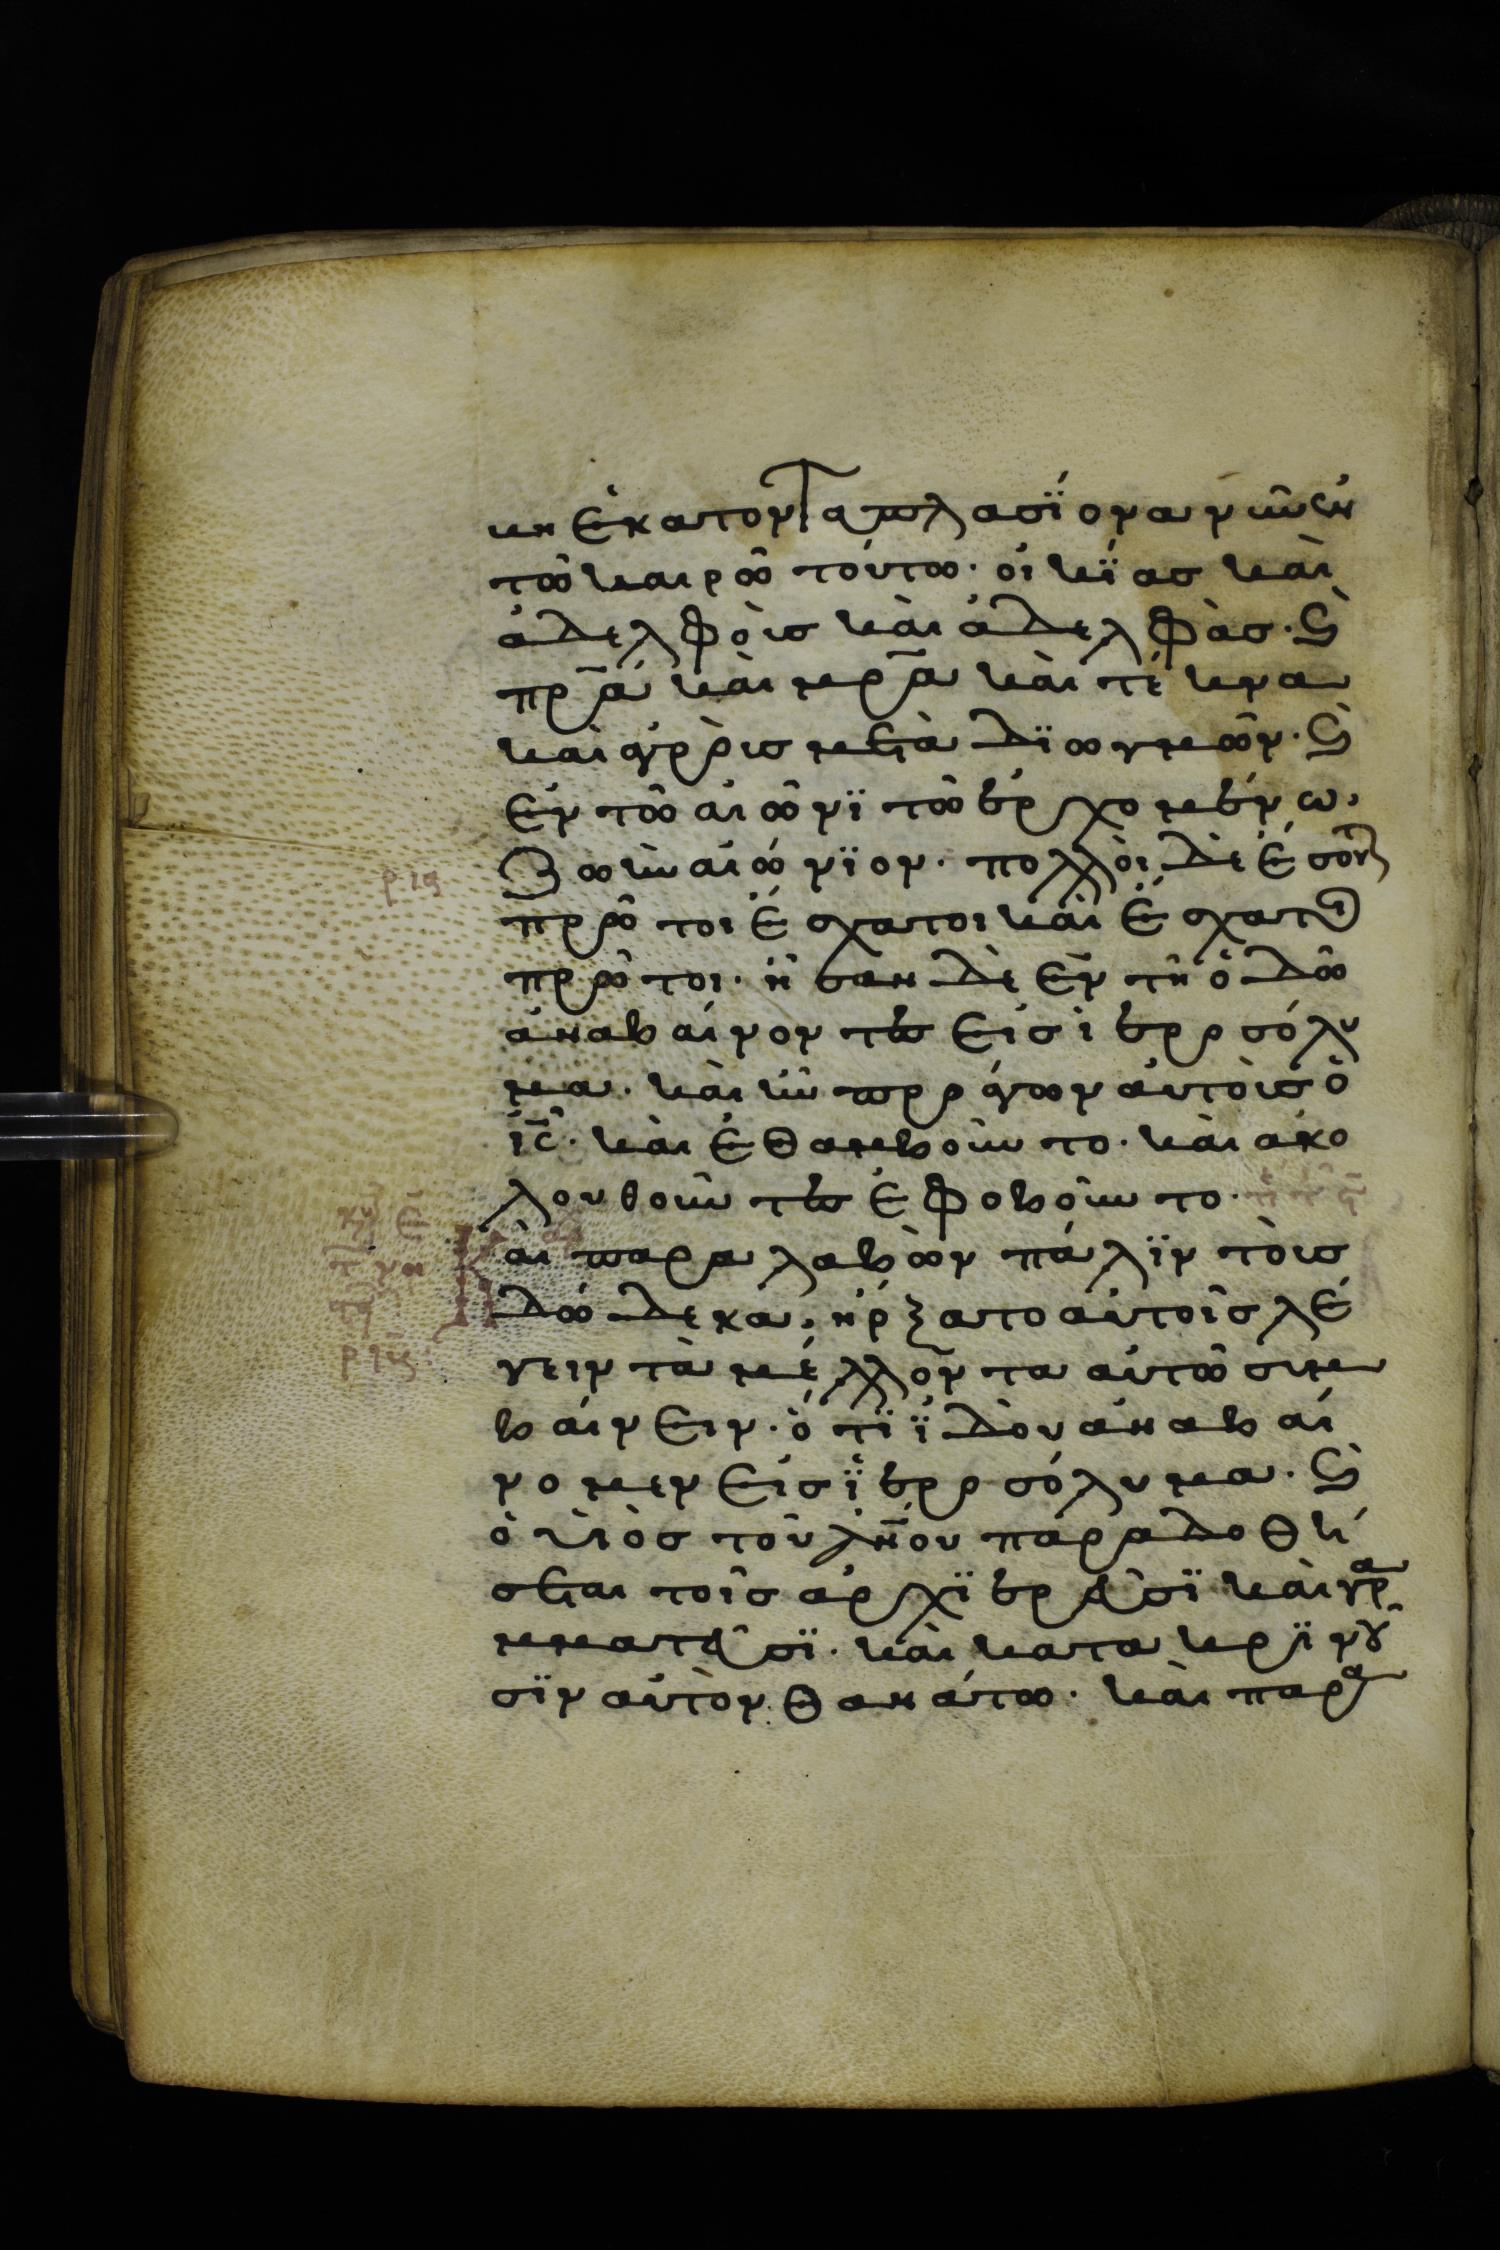 κη ἑκατονταπλασϊοναν νῦν ἐν
τῶ καιρῶ τούτω· οἰκΐας καὶ
ἀδελφοὺς καὶ ἀδελφὰς· ϗ
πρ̅α καὶ μρ̅α καὶ τέκνα
καὶ ἀγροὺς μετὰ δϊωγμῶν· ϗ
ἐν τῶ αἰῶνϊ τῶ ἐρχομένω,
ζωὴν αἰώνϊον· πολλοὶ δὲ ἔσοντ
ρις
πρῶτοι ἔσχατοι καὶ ἔσχατοι
πρῶτοι· ἦσαν δὲ ἐν τῆ ὁδῶ
ἀναβαίνοντες εἰς ἱεροσόλυ
μα· καὶ ἦν προάγων αὐτοὺς ὁ
ις̅· καὶ ἐθαμβοῦντο· καὶ ἀκο
λουθοῦντες ἐφοβοῦντο·
αὶ παραλαβὼν πάλϊν τοὺς
δώδεκα, ἤρξατο αὐτοῖς λέ
γειν τὰ μέλλοντα αὐτῶ συμ
βαίνειν· ὅτϊ ϊδοὺ ἀναβαί
νομεν εἰς ϊεροσόλυμα· ϗ
ὁ υἱὸς τοῦ ἀν̅ου παραδοθή
σεται τοῖς ἀρχϊερεῦσϊ καὶ γρα
μματεῦσϊ· καὶ κατακρϊνοῦ
σϊν αὐτὸν θανάτω· καὶ παρα